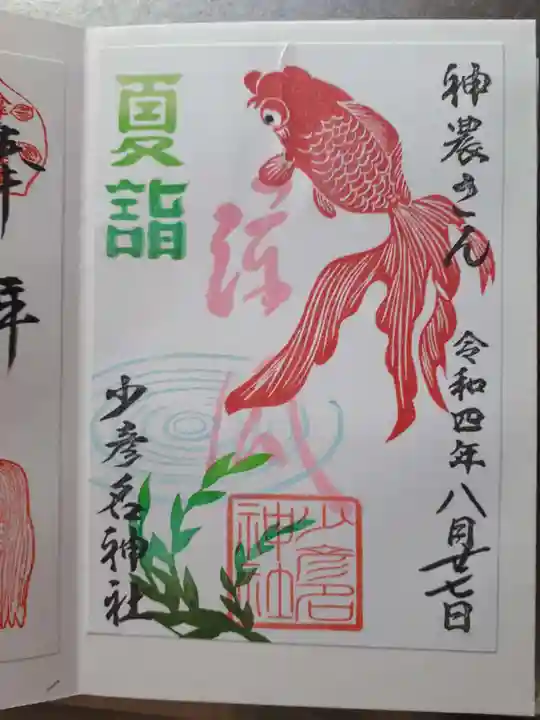 神農さん
令和四年八月廿七日
夏詣
涼風
少彦名神社
少彦名
神社
奉拝